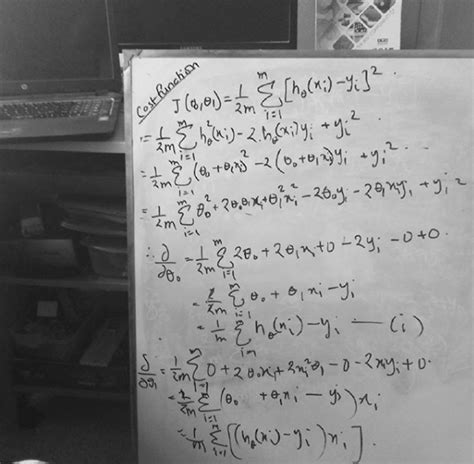 Cost Function
J(θ₀,θ₁) = 1/2m Σ_{i=1}^{m} [h_θ(x_i) - y_i]²
= 1/2m Σ_{i=1}^{m} h_θ²(x_i) - 2.h_θ(x_i)y_i + y_i²
= 1/2m Σ_{i=1}^{m} (θ₀ + θ₁x_i)² - 2(θ₀ + θ₁x_i)y_i + y_i²
= 1/2m Σ_{i=1}^{m} θ₀² + 2θ₀θ₁x_i + θ₁²x_i² - 2θ₀y_i - 2θ₁x_iy_i + y_i²
∴ ∂/∂θ₀ = 1/2m Σ_{i=1}^{m} 2θ₀ + 2θ₁x_i + 0 - 2y_i - 0 + 0
= 2/2m Σ_{i=1}^{m} θ₀ + θ₁x_i - y_i
= 1/m Σ_{i=1}^{m} h_θ(x_i) - y_i — (i)
∂/∂θ₁ = 1/2m Σ_{i=1}^{m} 0 + 2θ₀x_i + 2x_i²θ₁ - 0 - 2x_iy_i + 0
= 2/2m Σ_{i=1}^{m} (θ₀ + θ₁x_i - y_i) x_i
= 1/m Σ_{i=1}^{m} [(h_θ(x_i) - y_i) x_i].